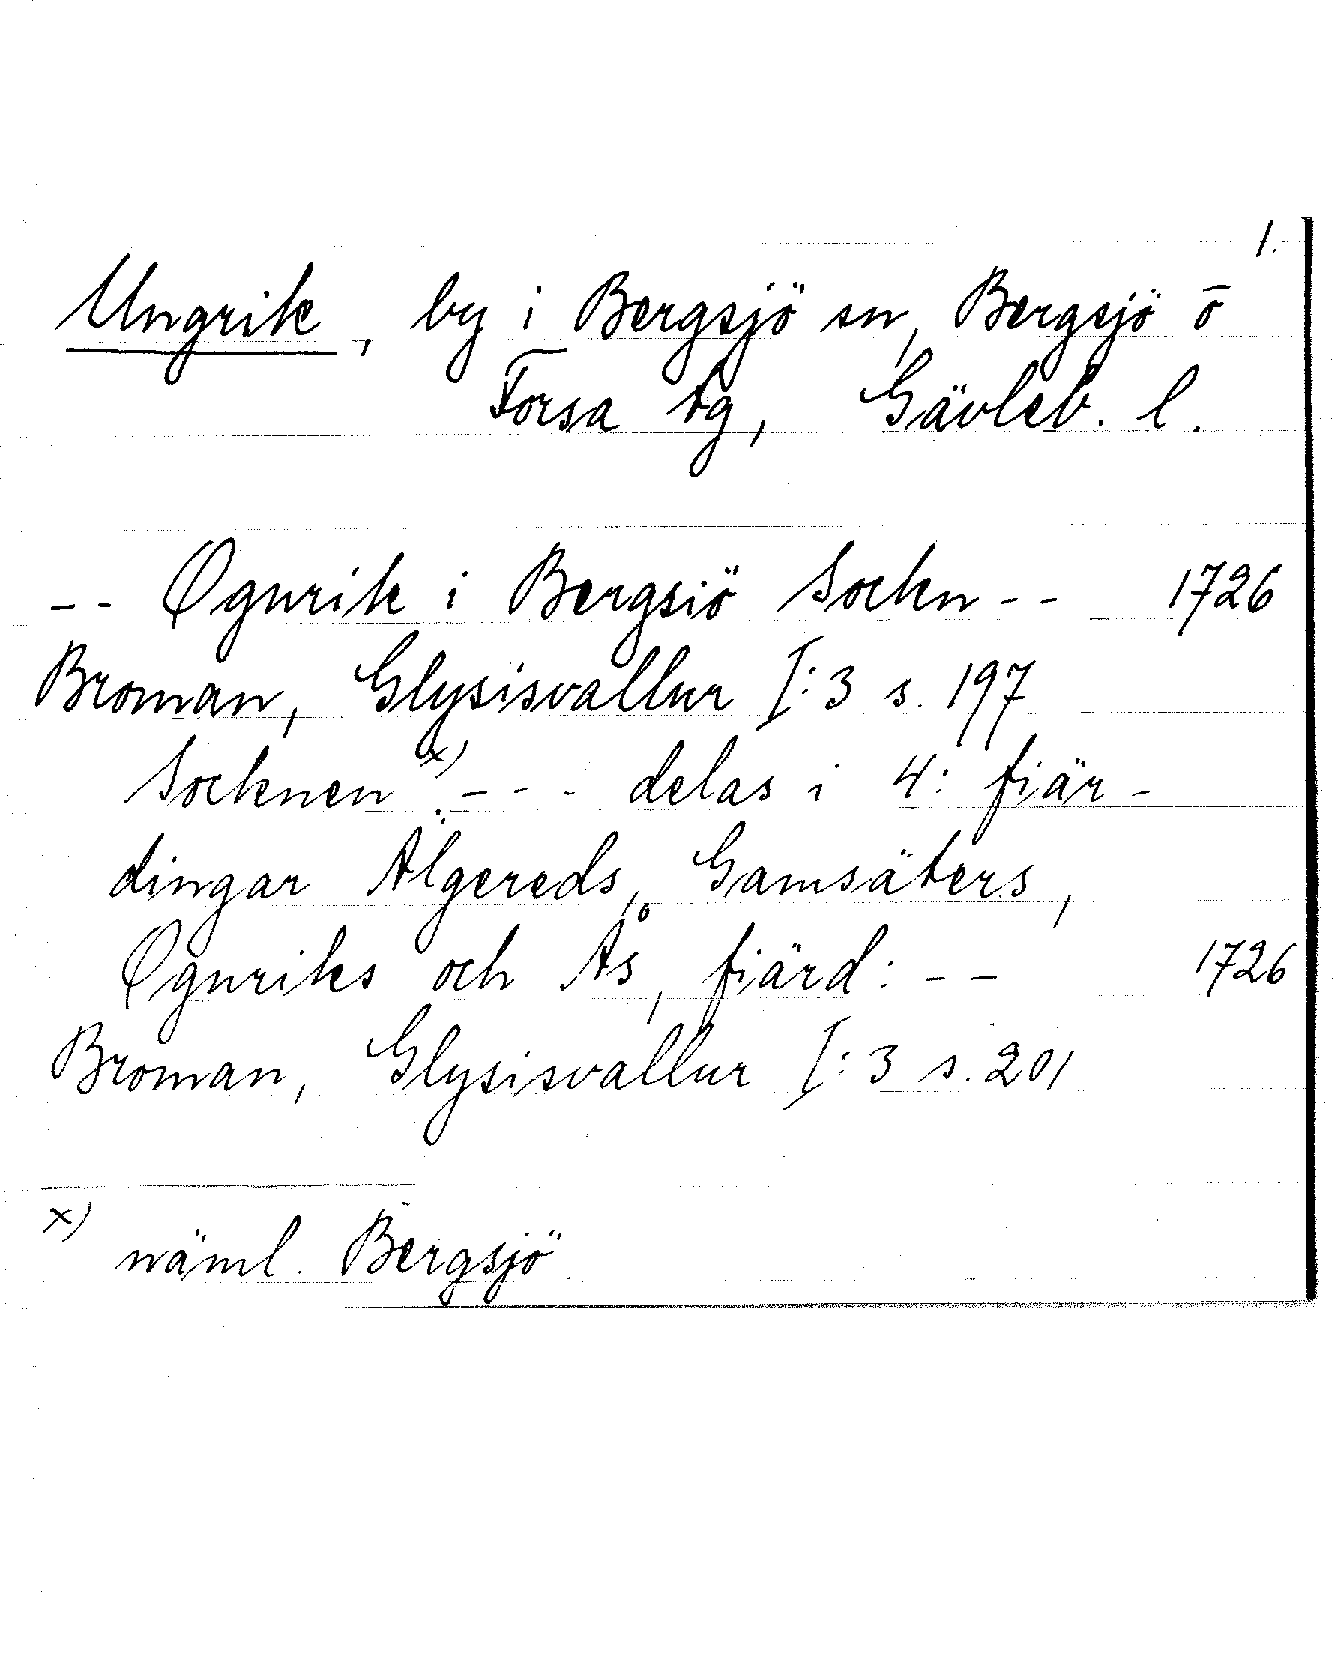 1.
Ungrik, by i Bergsjö sn, Bergsjö o
Forsa tg, Gävleb. l.
-- Øgnrik i Bergsiö Sockn -- 1726
Broman, Glysisvallur I:3 s. 197
Socknen x) --- delas i 4: fiär-
dingar Älgereds, Gamsäters,
Øgnriks och Ås, fiärd: -- 1726
Broman, Glysisvallur I:3 s. 201
x) näml. Bergsjö